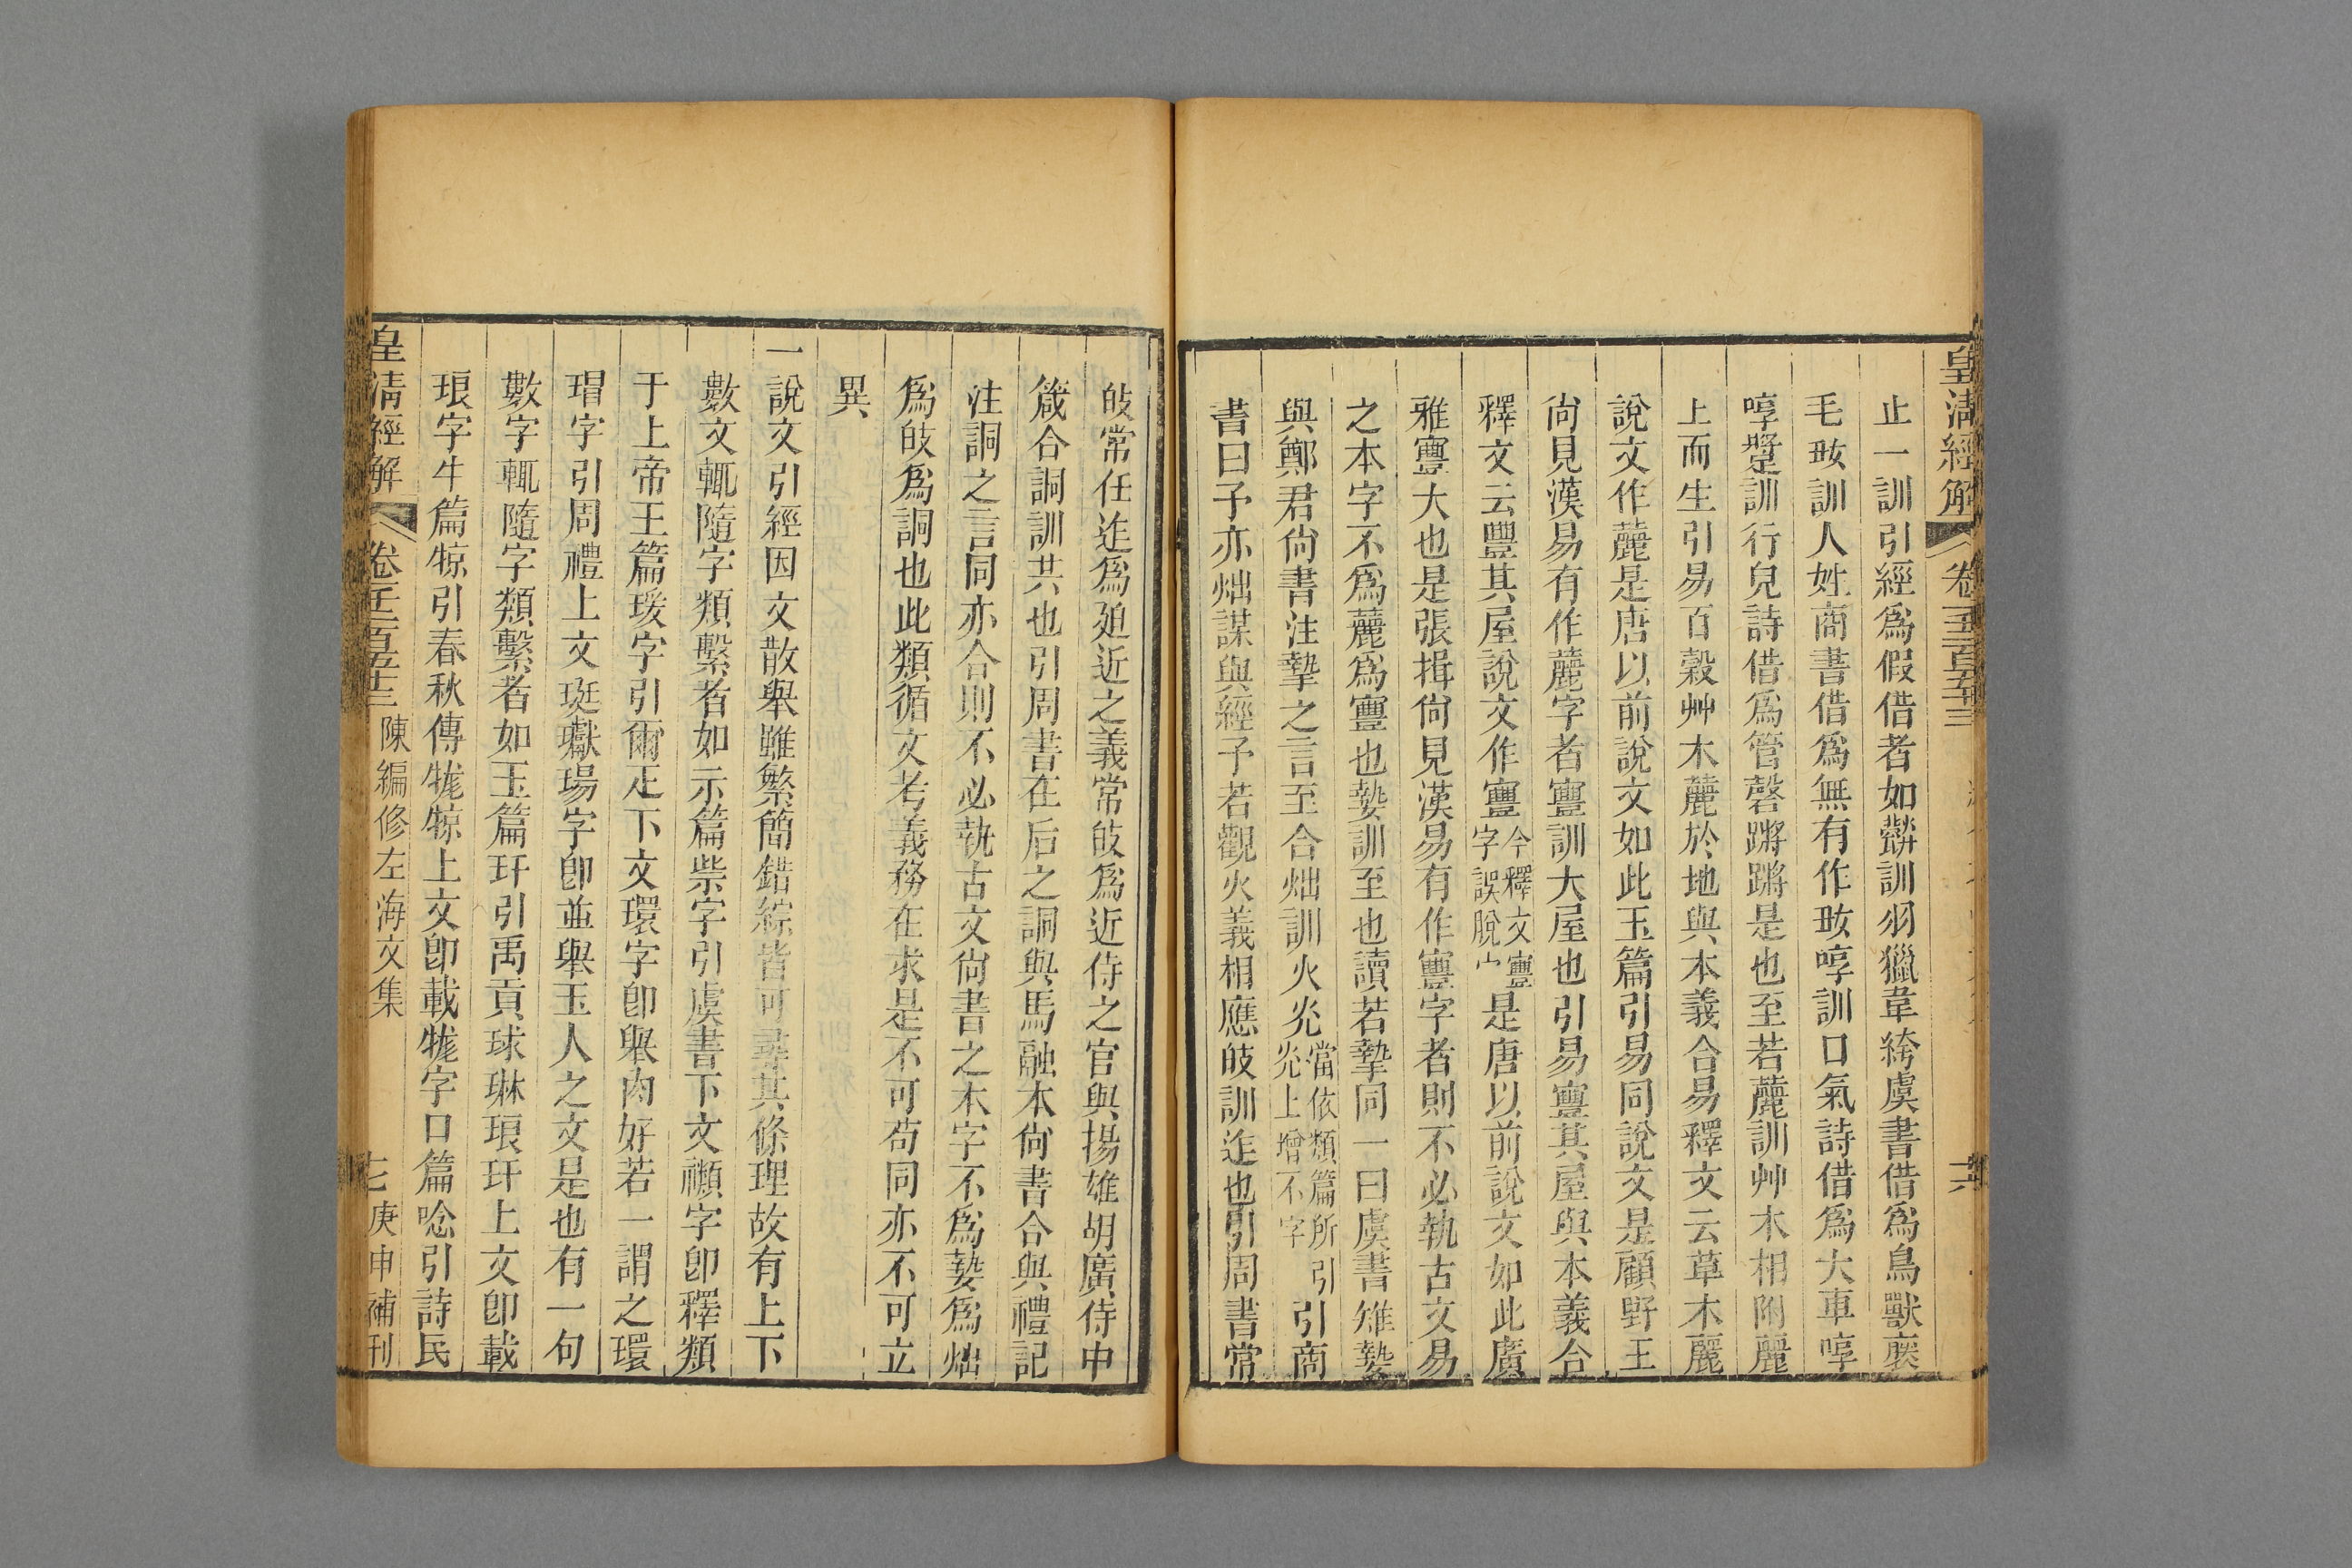 皇清經解 卷一千二百五十三
止一訓引經爲假借者如㲨訓羽獵韋絝虞書借爲鳥獸㲨
毛㛥訓人姓商書借爲無有作㛥啍訓口氣詩借爲大車啍
啍躄訓行皃詩借爲管磬蹡蹡是也至若䕻訓艸木相附䕻
上而生引易百穀艸木䕻於地與本義合易釋文云草木麗
說文作䕻是唐以前說文如此玉篇引易同說文是顧野王
尙見漢易有作䕻字者寷訓大屋也引易寷其屋與本義合
釋文云豐其屋說文作寷今釋文寷字誤脫宀是唐以前說文如此廣
雅寷大也是張揖尙見漢易有作寷字者則不必執古文易
之本字不爲䕻爲寷也㜘訓至也讀若摯同一曰虞書雉㜘
與鄭君尙書注摯之言至合炪訓火光當依類篇所引光上增不字引商
書曰予亦炪謀與經予若觀火義相應㩻訓迮也引周書常
㩻常任迮爲廹近之義常㩻爲近侍之官與揚雄胡廣侍中
箴合詷訓共也引周書在后之詷與馬融本尙書合與禮記
注詷之言同亦合則不必執古文尙書之本字不爲㜘爲炪
爲㩻爲詷也此類循文考義務在求是不可苟同亦不可立
異
一說文引經因文散舉雖繁簡錯綜皆可尋其條理故有上下
數文輒隨字類繫者如示篇祡字引虞書下文𥜹字卽釋類
于上帝王篇瑗字引爾疋下文環字卽舉肉好若一謂之環
瑁字引周禮上文珽瓛瑒字卽並舉玉人之文是也有一句
數字輒隨字類繫者如玉篇玕引禹貢球琳琅玕上文卽載
琅字牛篇㹁引春秋傳牻㹁上文卽載牻字口篇唸引詩民
皇清經解 卷一千二百五十三 陳編修左海文集 七 庚申補刊